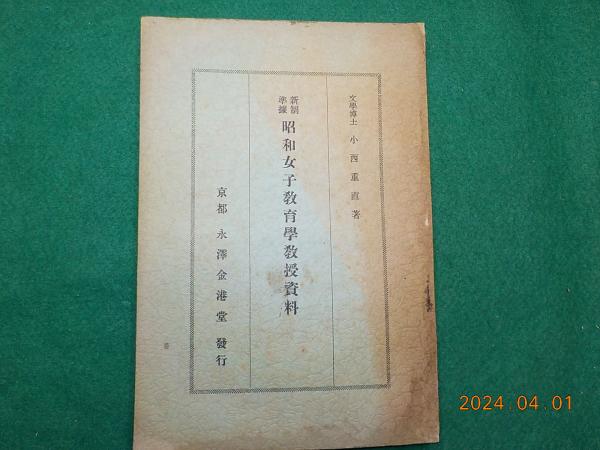 文學博士 小西重直著
新制準據 昭和女子教育學教授資料
京都 永澤金港堂 發行
2024.04.01